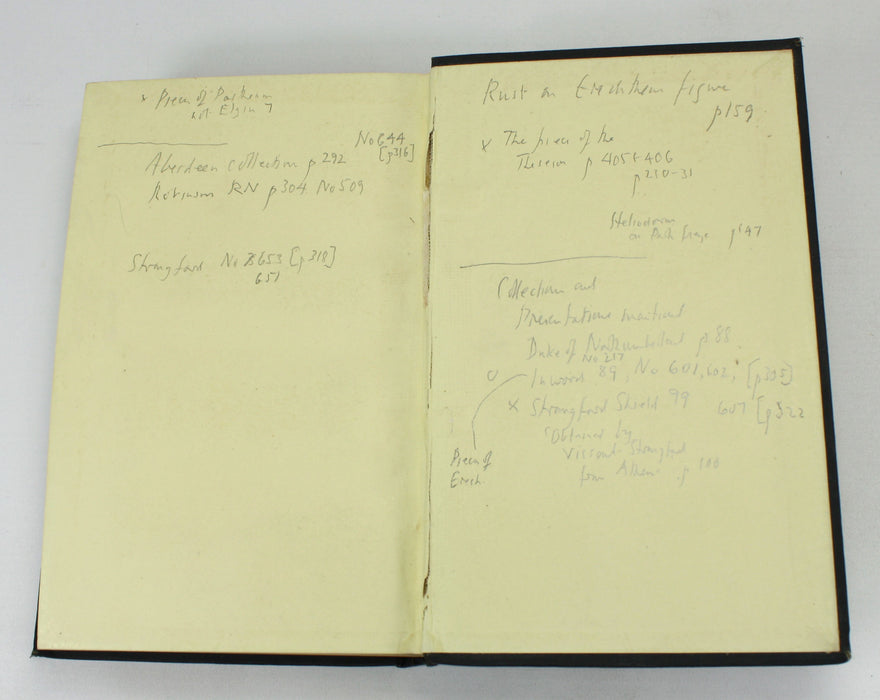 x Pieces of Parthenon
not Elgin 7
No 644
[p316]
Aberdeen collection p 292
Robinson RN p 304. No 509
Strangford No 653 [p 318]
651
Rust on Erechtheum figure
p159
x The pieces of the
Theseion p 405+406
p 230-31
Heliodorus
on Parth frieze p 147
Collections and
Presentations mentioned
Duke of Northumberland p 88
No 217
Inwood 89, No 601, 602, [p305]
x Strangford Shield 99 607 [p322
Obtained by
Viscount Strangford
from Athens p 100
Pieces of
Erech.